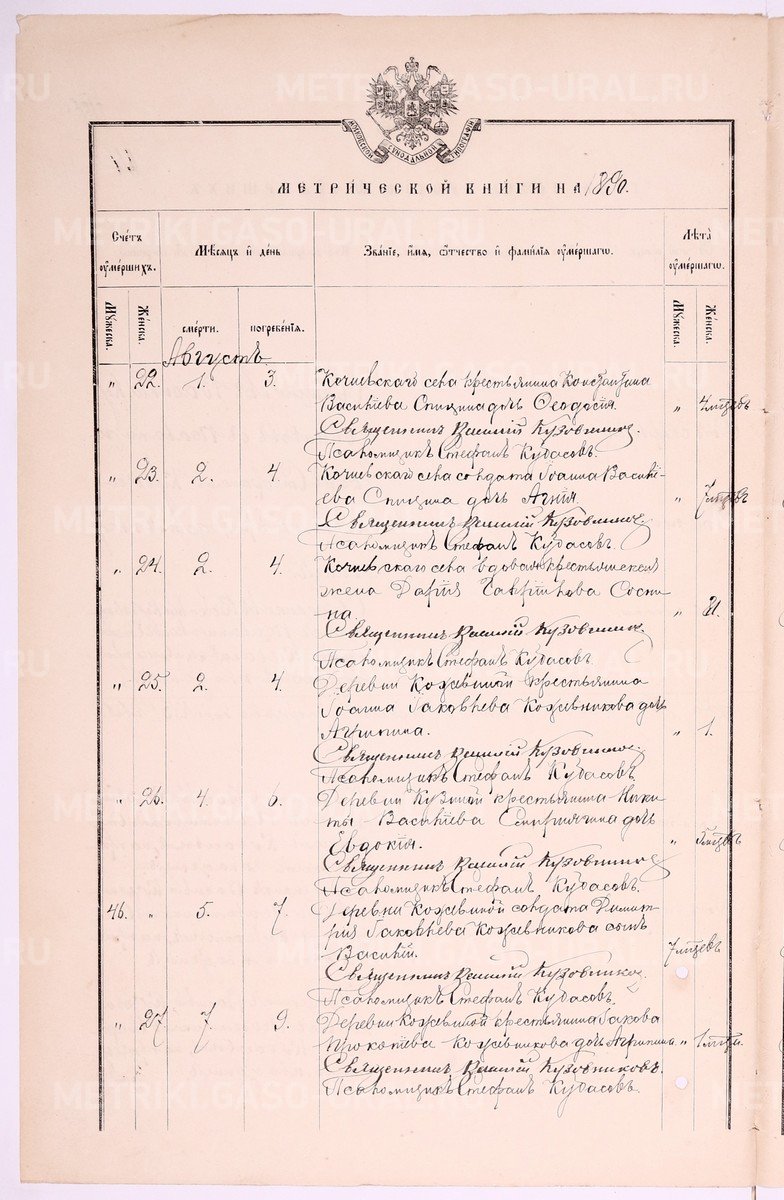 МЕТРИЧЕСКОЙ КНИГИ НА 1890.
Счетъ оумершихъ.
Мѣсяцъ и день
Званіе, имя, отчество и фамилія оумершаго.
Лѣта оумершаго.
Мужеска.
Женска.
смерти.
погребенія.
Мужеска.
Женска.
Августъ
" 22. 1. 3. Кочневскаго села крестьянина Константина
Василіева Спицина дочь Ѳеодосія. " 4 мцевъ
Священникъ Василій Кузовников.
Псаломщикъ Стефанъ Кудасовъ.
" 23. 2. 4. Кочневскаго села солдата Іоанна Василі-
ева Спицина дочь Агнія. " 7 мцевъ
Священникъ Василій Кузовников
Псаломщикъ Стефанъ Кудасовъ.
" 24. 2. 4. Кочневскаго села вдовая крестьянская
жена Дарія Гавріилова Сосни-
на. "
Священникъ Василій Кузовников
Псаломщикъ Стефанъ Кудасовъ.
" 25. 2. 4. Деревни Кожевиной крестьянина
Іоанна Іаковлева Кожевникова дочь
Агрипина. " 1.
Священникъ Василій Кузовников.
Псаломщикъ Стефанъ Кудасовъ
" 26. 4. 6. Деревни Кузиной крестьянина Ники-
ты Василіева дочь
Евдокія. " мцевъ
Священникъ Василій Кузовников
Псаломщикъ Стефанъ Кудасовъ.
46. " 5. 7. Деревни Кожевиной солдата Димит-
рія Іаковлева Кожевникова сынъ
Василій. 7 мцевъ
Священникъ Василій Кузовников.
Псаломщикъ Стефанъ Кудасовъ.
" 27 7. 9. Деревни Кожевиной крестьянина Іакова
Прокопіева Кожевникова дочь Агрипина. " 1 мца.
Священникъ Василій Кузовниковъ.
Псаломщикъ Стефанъ Кудасовъ.